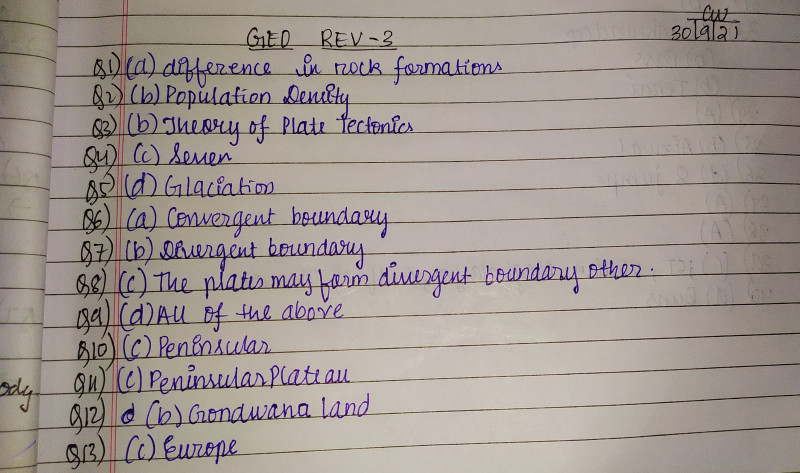 CW
GEO REV-3
30/9/21
Q1) (a) difference in rock formations
Q2) (b) Population Density
Q3) (b) Theory of Plate Tectonics
Q4) (c) Seven
Q5) (d) Glaciation
Q6) (a) Convergent boundary
Q7) (b) Divergent boundary
Q8) (c) The plates may form divergent boundary other.
Q9) (d) All of the above
Q10) (c) Peninsular
Q11) (c) Peninsular Plateau
ody
Q12) (b) Gondwana land
Q13) (c) Europe